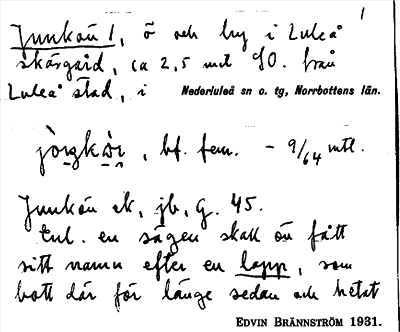 1
Junkön 1, ö och by i Luleå
skärgård, ca 2,5 mil SO. från
Luleå stad, i Nederluleå sn o. tg, Norrbottens län.
, bf. fem. - 9/64 mtl.
Junkön ek, jb, g. 45.
Enl. en sägen skall ön fått
sitt namn efter en lapp, som
bott där för länge sedan och hetat
EDVIN BRÄNNSTRÖM 1931.